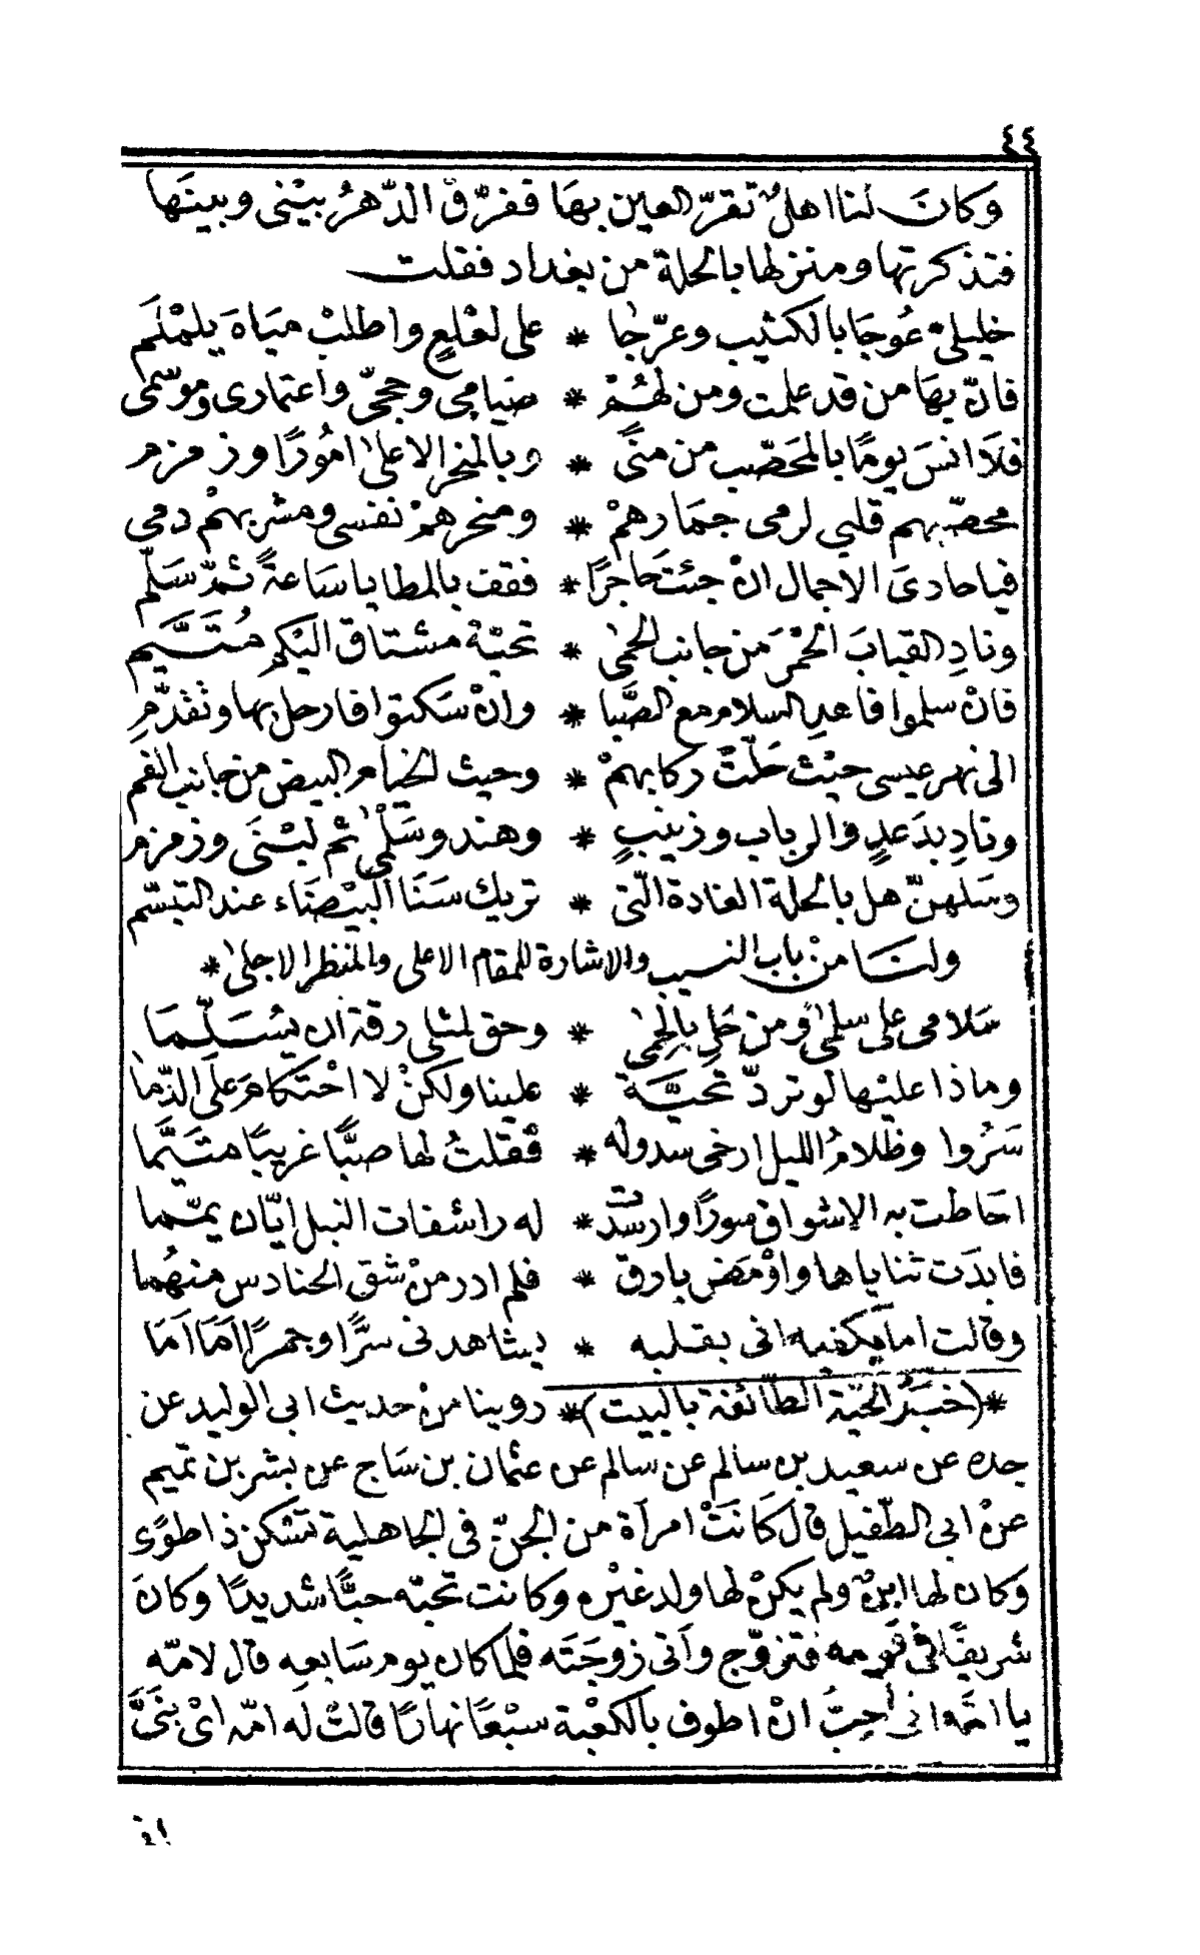 ٤٤
وكانَ لنا اهلٌ تقرّ العين بهَا ففرّق الدّهرُ بيْنى وبينَها
فتذكرتها ومنزلها بالحلة من بغداد فقلت
خليلىّ عُوجَا بالكثيب وعرّجٰا * على لعْلعٍ واطلبْ ميَاهَ يلمْلَم
فانّ بهَا من قد علمت ومن لهُمْ * صيامى وحجىّ واعتمارى وموْسمى
فلَا انسَ يومًا بالمحَصّب من منىً * وبالمنحر الاعلىٰ امُورًا وزمزم
محصّبهم قلبى لرمى جمَارهمْ * ومنحرهمْ نفسى ومشربهمْ دمى
فيا حادىَ الاجمال انْ جئتَ حَاجرًا * فقف بالمطايا سَاعةً ثمّ سَلّم
ونادِ القبابَ الحُمْرَ من جانب الحمىٰ * تحيّة مشتاق اليْكم مُتَيَّم
فانْ سلموا فاهدِ السلام مع الصَّبا * وانْ سَكتوا فارحل بها وتقدّمِ
الى نهر عيسى حيْث حَلّتْ ركابهمْ * وحيث الخيام البيض من جانب الفم
ونادِ بدَعدٍ والرباب وزينبٍ * وهند وسَلْمىٰ ثم لبْنَى وزمزم
وسَلهنّ هل بالحلة الغادة الّتى * تريك سَنَا البيْضَاء عند التبسّم
ولنَا منْ باب النسيب والاشارة للمقام الاعلى والمنظر الاجلىٰ *
سَلامى على سلمىٰ ومن حَل بالحمىٰ * وحق لمثلى رقة ان يسَلّمَا
وماذا عليْها لو تردّ تحيَّة * علينا ولكنْ لا احْتكامَ علَى الدّمٰا
سَرُوا وظلامُ الليل ارخى سدوله * فقلتُ لها صبًّا غريبًا متَيَّما
احَاطت به الاشواق صورًا وارسدت * له راشقات النبل ايّان يمّما
فابدَت ثناياها واوْمَض بارق * فلم ادر منْ شق الحنادس منهُما
وقالت امَا يكفيه انى بقلبه * يشاهدنى سرًّا وجهرًا امَا امَا
*(خبَرُ الحيّة الطّائفة بالبيت)* روينا منْ حديث ابى الوليد عن
جده عن سعيد بن سالم عن سالم عن عثمان بن سَاج عن بشر بن تميم
عنْ ابى الطّفيل قالَ كَانَتْ امرأة من الجنّ فى الجاهلية تسْكن ذا طوًى
وكان لها ابنٌ ولم يكنْ لها ولد غيْره وكانت تحبّه حبًّا شديدًا وكانَ
شريفًا فى قومه فتزوّج وأتى زوجَتَه فلما كان يوم سَابعه قال لامّه
يا امَّه انى اُحِبُّ انْ اطوف بالكعْبة سبْعًا نهارًا قالتْ له امّه اىْ بنَىَّ